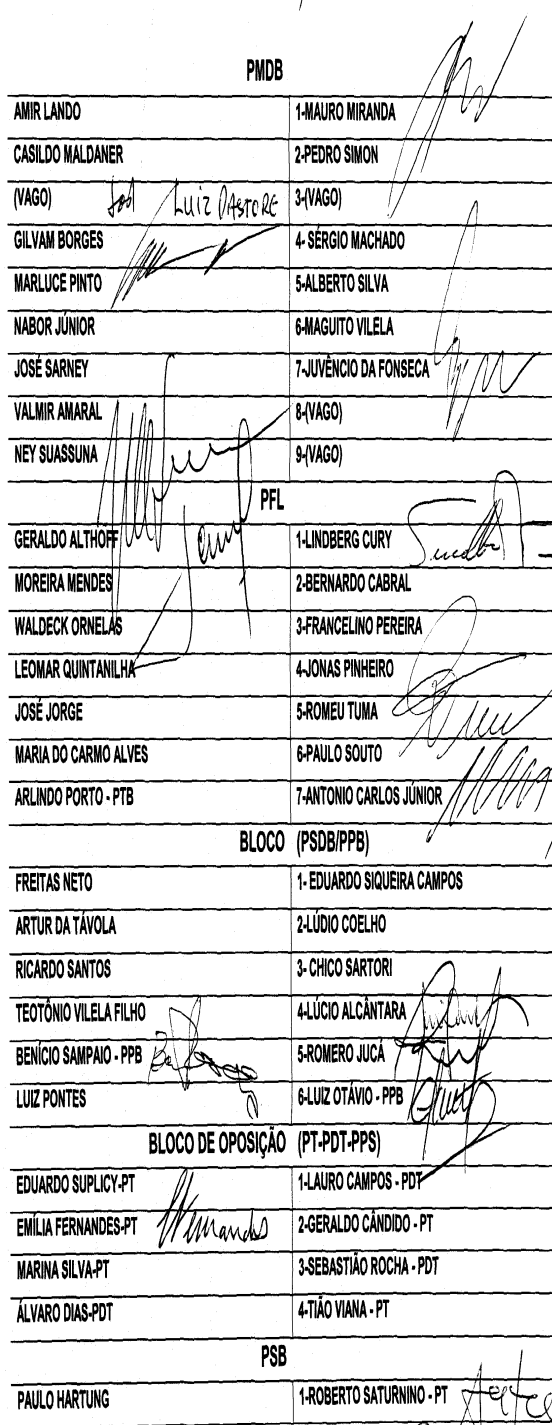 PMDB
AMIR LANDO 1-MAURO MIRANDA
CASILDO MALDANER 2-PEDRO SIMON
(VAGO) LUIZ PASTORE 3-(VAGO)
GILVAM BORGES 4- SÉRGIO MACHADO
MARLUCE PINTO 5-ALBERTO SILVA
NABOR JÚNIOR 6-MAGUITO VILELA
JOSÉ SARNEY 7-JUVÊNCIO DA FONSECA
VALMIR AMARAL 8-(VAGO)
NEY SUASSUNA 9-(VAGO)
PFL
GERALDO ALTHOFF 1-LINDBERG CURY
MOREIRA MENDES 2-BERNARDO CABRAL
WALDECK ORNELAS 3-FRANCELINO PEREIRA
LEOMAR QUINTANILHA 4-JONAS PINHEIRO
JOSÉ JORGE 5-ROMEU TUMA
MARIA DO CARMO ALVES 6-PAULO SOUTO
ARLINDO PORTO - PTB 7-ANTONIO CARLOS JÚNIOR
BLOCO (PSDB/PPB)
FREITAS NETO 1- EDUARDO SIQUEIRA CAMPOS
ARTUR DA TÁVOLA 2-LÚDIO COELHO
RICARDO SANTOS 3- CHICO SARTORI
TEOTÔNIO VILELA FILHO 4-LÚCIO ALCÂNTARA
BENÍCIO SAMPAIO - PPB 5-ROMERO JUCÁ
LUIZ PONTES 6-LUIZ OTÁVIO - PPB
BLOCO DE OPOSIÇÃO (PT-PDT-PPS)
EDUARDO SUPLICY-PT 1-LAURO CAMPOS - PDT
EMÍLIA FERNANDES-PT 2-GERALDO CÂNDIDO - PT
MARINA SILVA-PT 3-SEBASTIÃO ROCHA - PDT
ÁLVARO DIAS-PDT 4-TIÃO VIANA - PT
PSB
PAULO HARTUNG 1-ROBERTO SATURNINO - PT